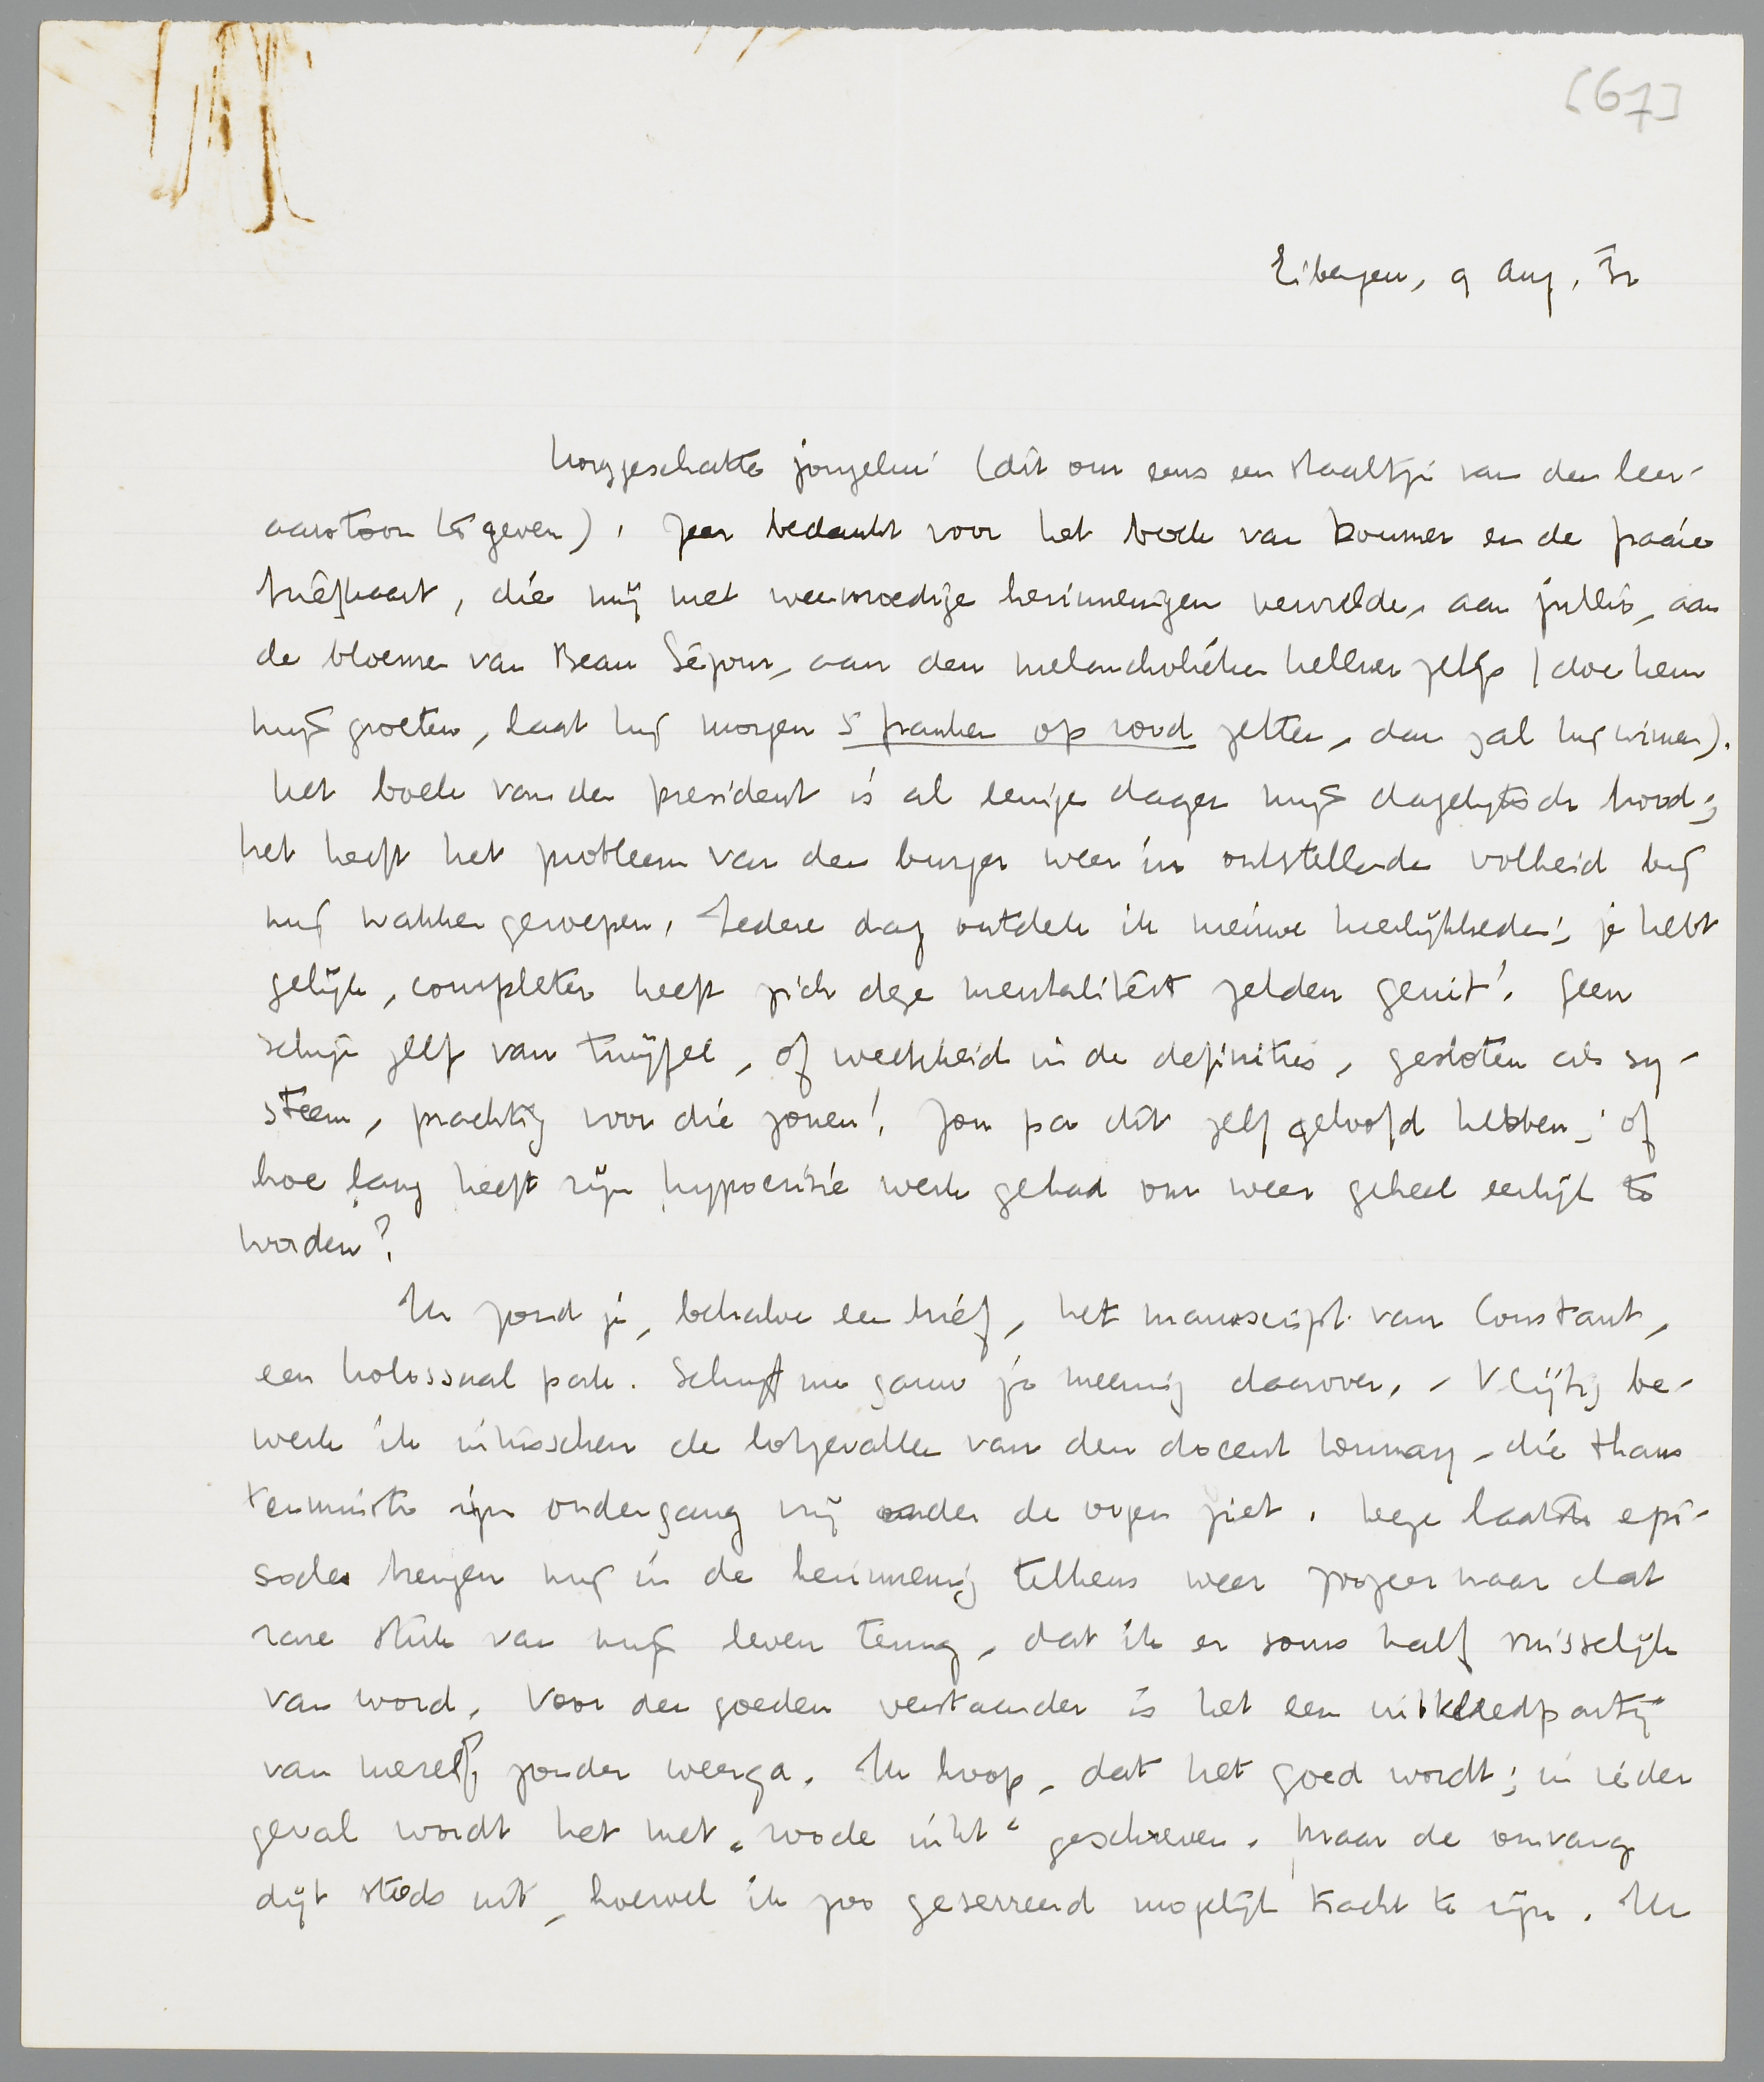 [67]
Eibergen, 9 Aug. 32
Hooggeschatte jongelui (dit om eens een staaltje van den leer-
aarstoon te geven), zeer bedankt voor het boek van Doumer en de fraaie
briefkaart, die mij met weemoedige herinneringen vervulde, aan jullie, aan
de bloemen van Beau Séjour, aan den melancholieken kellner zelfs (doe hem
mijn groeten, laat hij morgen 5 franken op rood zetten, dan zal hij winnen).
Het boek van den president is al eenige dagen mijn dagelijksch brood;
het heeft het probleem van den burger weer in ontstellende volheid bij
mij wakker geroepen. Iedere dag ontdek ik nieuwe heerlijkheden; je hebt
gelijk, completer heeft zich deze mentaliteit zelden geuit! Geen
schijn zelf van twijfel, of weekheid in de definities, gesloten als sy-
steem, prachtig voor die zonen! Zou pa dit zelf geloofd hebben; of
hoe lang heeft zijn hypocrisie werk gehad om weer geheel eerlijk te
worden?
Ik zond je, behalve een brief, het manuscript van Constant,
een kolossaal pak. Schrijf me gauw je meening daarover. - Vlijtig be-
werk ik intusschen de lotgevallen van den docent Dumay, die thans
tenminste zijn ondergang vrij onder de oogen ziet. Deze laatste epi-
sodes brengen mij in de herinnering telkens weer zoozeer naar dat
rare stuk van mijn leven terug, dat ik er soms half misselijk
van word. Voor den goeden verstaander is het een uitkleedpartij
van mezelf, zonder weerga. Ik hoop, dat het goed wordt; in ieder
geval wordt het met „roode inkt“ geschreven. Maar de omvang
dijt steeds uit, hoewel ik zoo geserreerd mogelijk tracht te zijn. Ik